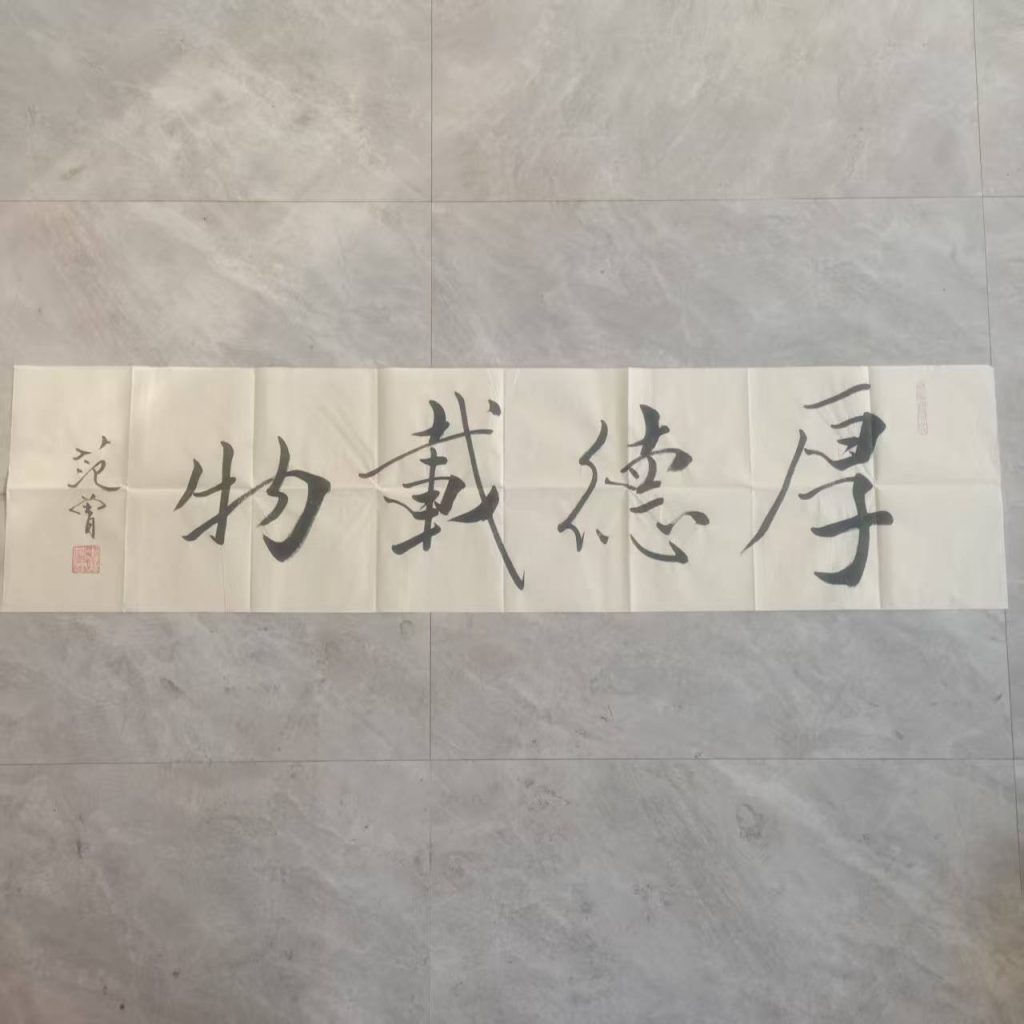 厚德載物
范曾